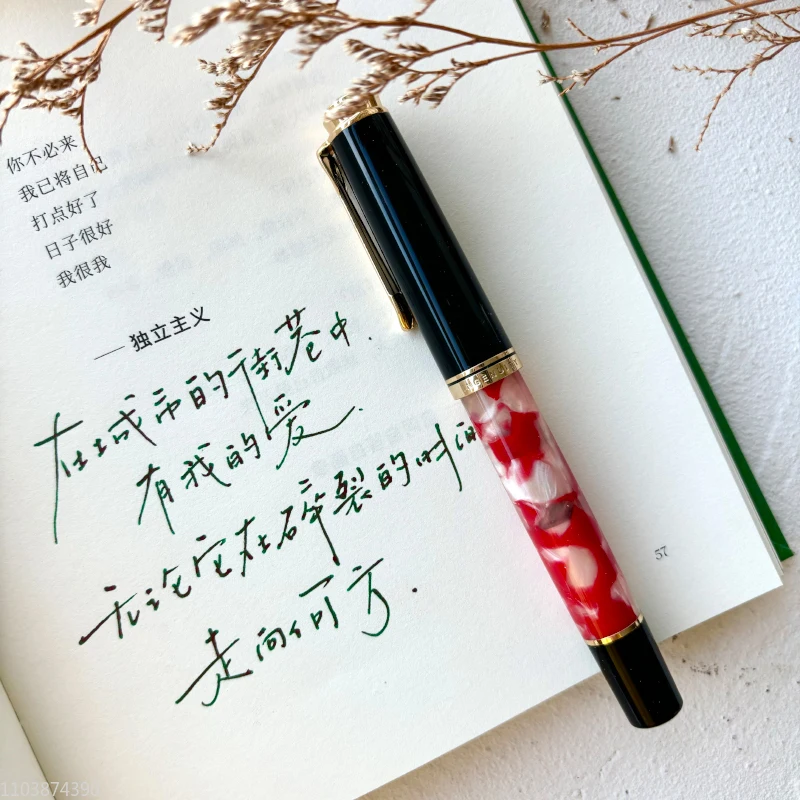 你不必来
我已将自己
打点好了
日子很好
我很我
——独立主义
在城市的街巷中.
有我的爱.
无论它在碎裂的时间
走向何方.
57